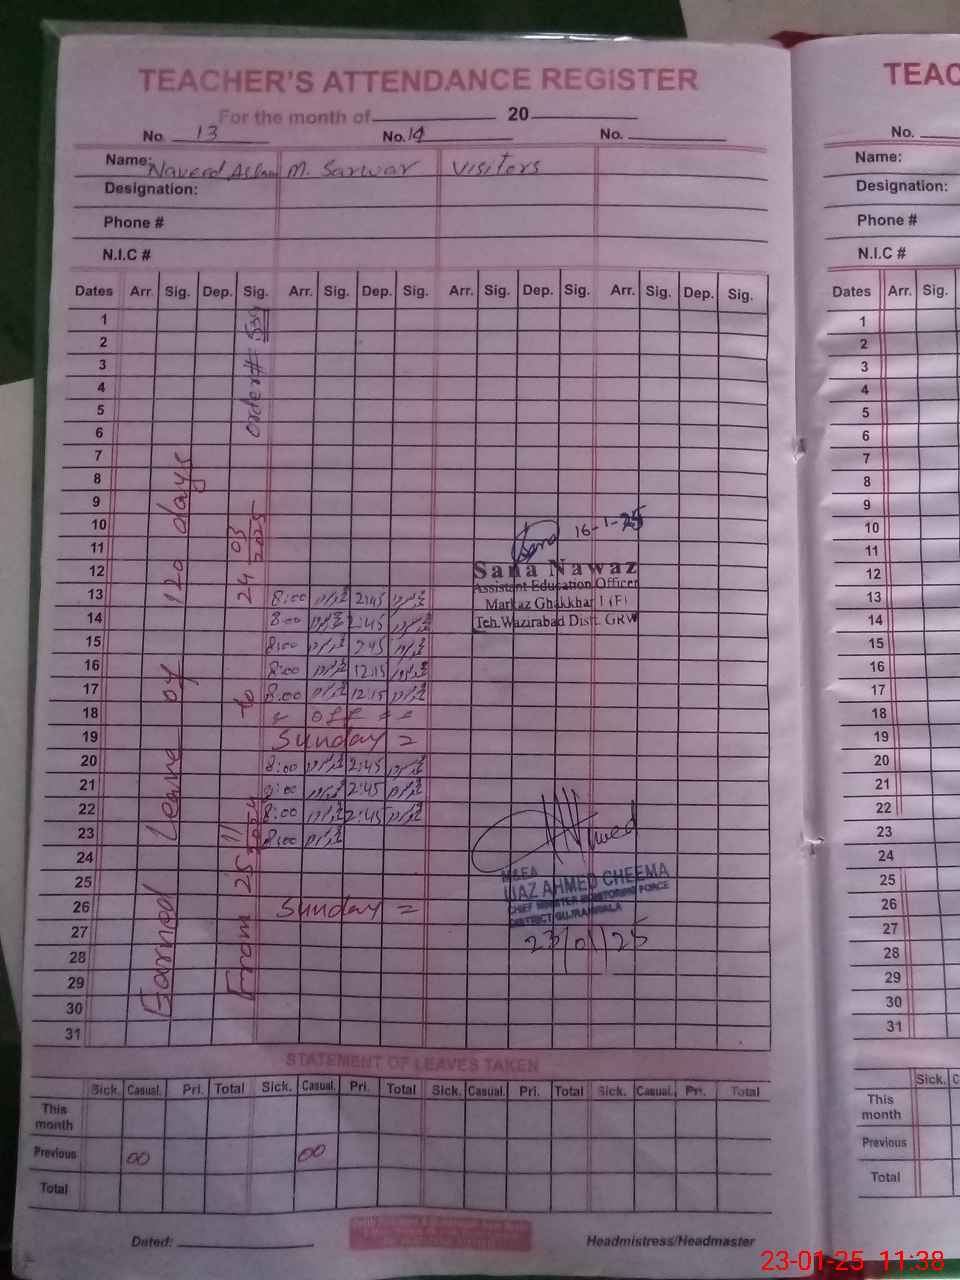 TEACHER'S ATTENDANCE REGISTER
For the month of 20
No. 13 No. 14 No.
Name: Naveed Aslam M. Sarwar Visitors
Designation:
Phone #
N.I.C #
Dates Arr. Sig. Dep. Sig. Arr. Sig. Dep. Sig. Arr. Sig. Dep. Sig. Arr. Sig. Dep. Sig.
Earned Leave of 120 days
From 25 11 2024 to 24 03 2025 order #
1
2
3
4
5
6
7
8
9
10 16-1-25
11
12 Sana Nawaz
Assistant Education Officer
13 8:00 2:45
Markaz Ghakkhar 1 (F)
14 8:00 2:45
Teh.Wazirabad Distt. GRW
15 8:00 2:45
16 8:00 12:15
17 8:00 12:15
18 = off = =
19 Sunday =
20 8:00 2:45
21 8:00 2:45
22 8:00 2:45
23 8:00
24
25 M&EA
IJAZ AHMED CHEEMA
26 Sunday =
CHIEF MINISTER MONITORING FORCE
DISTRICT GUJRANWALA
27 23/01/25
28
29
30
31
STATEMENT OF LEAVES TAKEN
Sick. Casual. Pri. Total Sick. Casual. Pri. Total Sick. Casual. Pri. Total Sick. Casual. Pri. Total
This month
Previous 00 00
Total
Dated: Headmistress/Headmaster
TEAC
No.
Name:
Designation:
Phone #
N.I.C #
Dates Arr. Sig.
1
2
3
4
5
6
7
8
9
10
11
12
13
14
15
16
17
18
19
20
21
22
23
24
25
26
27
28
29
30
31
Sick. C
This month
Previous
Total
23-01-25 11:38